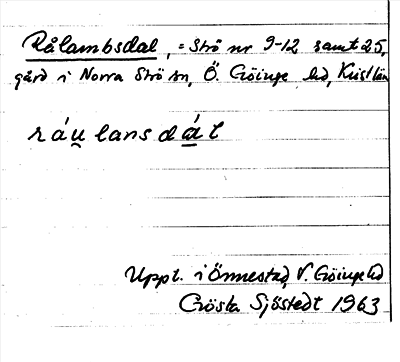 Rålambsdal, = Strö nr 9-12 samt 25,
gård i Norra Strö sn, Ö. Göinge hd, Krist län
ráu̯lansdál
Uppt. i Önnestad, V. Göinge hd
Gösta Sjöstedt 1963